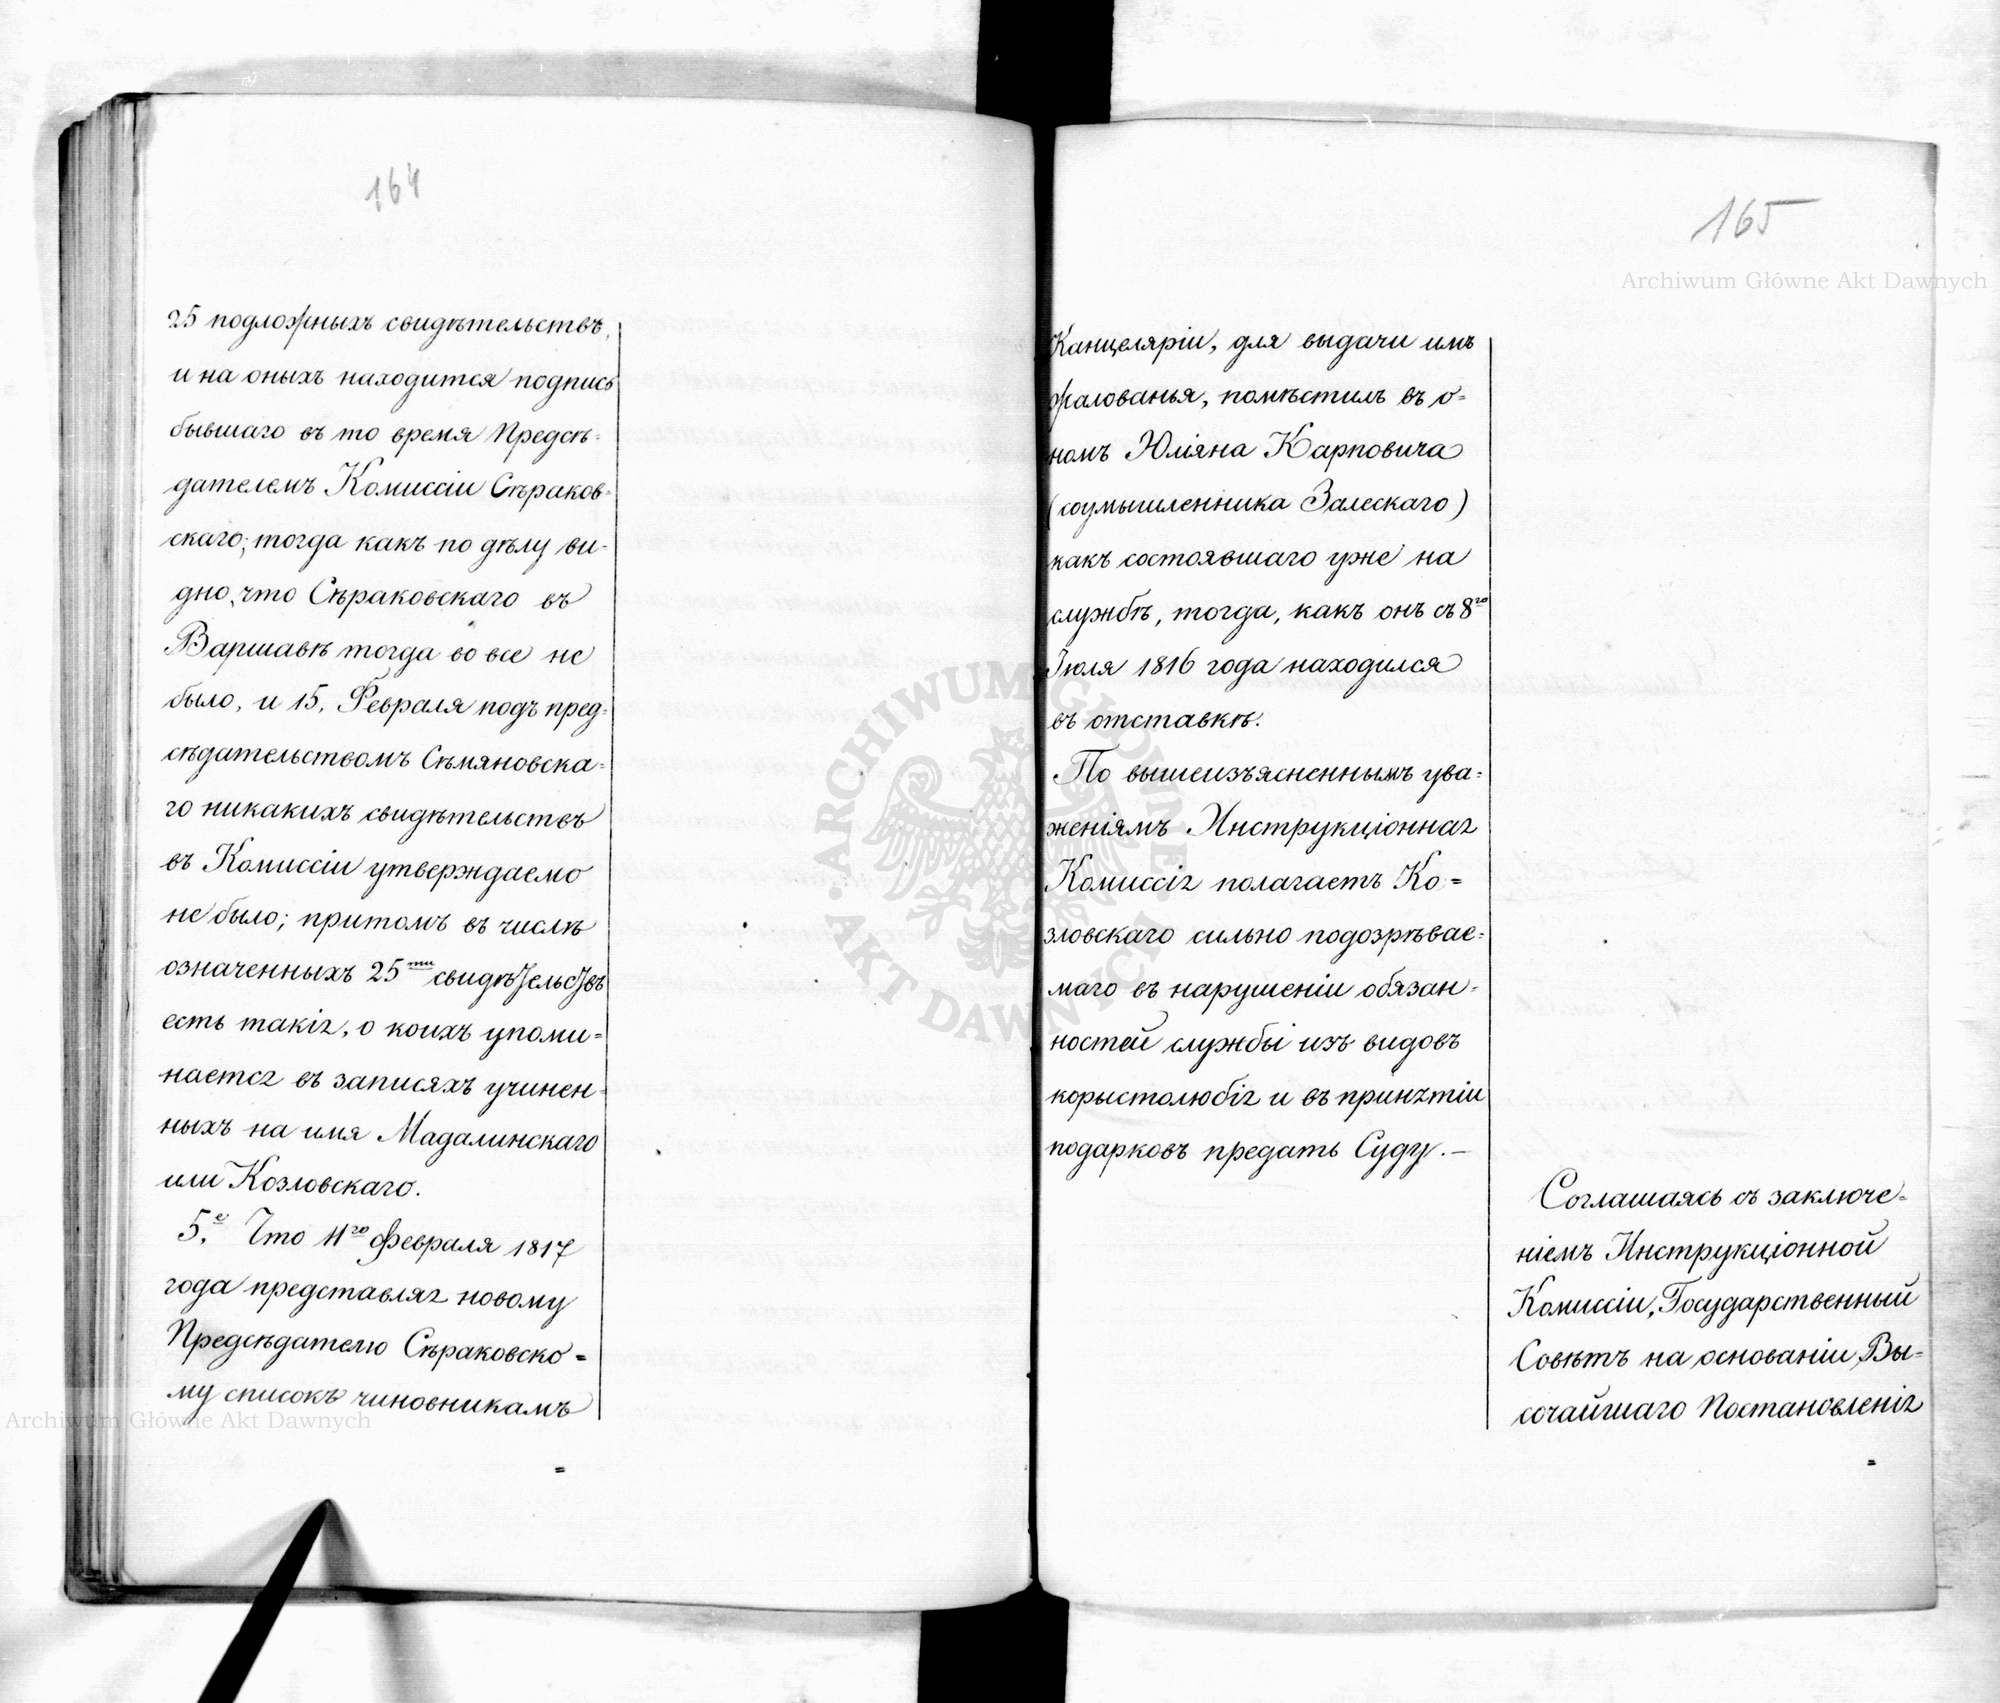 164
25 подложныхъ свидѣтельствъ,
и на оныхъ находится подпись
бывшаго въ то время Предсѣ-
дателемъ Комиссіи Сѣраков-
скаго; тогда какъ по дѣлу ви-
дно, что Сѣраковскаго въ
Варшавѣ тогда во все не
было, и 15. Февраля подъ пред-
сѣдательствомъ Сѣмяновска-
го никакихъ свидѣтельствъ
въ Комиссіи утверждаемо
не было; притомъ въ числѣ
означенныхъ 25ти свидѣтельствъ
есть такія, о коихъ упоми-
нается въ записяхъ учинен-
ныхъ на имя Мадалинскаго
или Козловскаго.
5.е Что 11го Февраля 1817
года представляя новому
Предсѣдателю Сѣраковско=
му списокъ чиновникамъ
=
165
Канцеляріи, для выдачи имъ
жалованья, помѣстилъ въ о=
номъ Юліяна Карповича
(соумышленника Залескаго)
какъ состоявшаго уже на
службѣ, тогда, какъ онъ съ 8го
Іюля 1816 года находился
въ отставкѣ.
По вышеизъясненнымъ ува=
женіямъ Инструкціонная
Комиссія полагаетъ Ко=
зловскаго сильно подозрѣвае=
маго въ нарушеніи обязан-
ностей службы изъ видовъ
корыстолюбія и въ принятіи
подарковъ предать Суду.—
Соглашаясь съ заключе=
ніемъ Инструкціонной
Комиссіи, Государственный
Совѣтъ на основаніи Вы=
сочайшаго Постановленія
=
Archiwum Główne Akt Dawnych
Archiwum Główne Akt Dawnych
ARCHIWUM GŁÓWNE AKT DAWNYCH